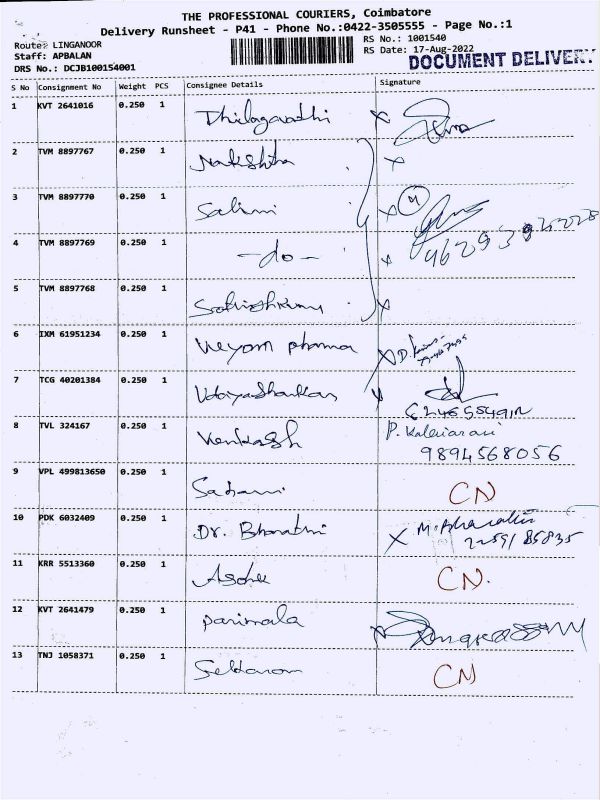 THE PROFESSIONAL COURIERS, Coimbatore
Delivery Runsheet - P41 - Phone No.:0422-3505555 - Page No.:1
Route: LINGANOOR
RS No.: 1001540
Staff: APBALAN
RS Date: 17-Aug-2022
DOCUMENT DELIVERY
DRS No.: DCJB100154001
S No Consignment No Weight PCS Consignee Details Signature
1 KVT 2641016 0.250 1 Thilagavathi
2 TVM 8897767 0.250 1 Nakshitha x
3 TVM 8897770 0.250 1 Salini x M
4 TVM 8897769 0.250 1 -do- x
5 TVM 8897768 0.250 1 Sathishkumar x
6 IXM 61951234 0.250 1 Veyom pharma x D.
7 TCG 40201384 0.250 1 Udayashankar x
8 TVL 324167 0.250 1 Venkatesh P. Kalaiarasi
9894568056
9 VPL 499813650 0.250 1 CN
10 PDK 6032409 0.250 1 Dr. Bharathi x M. Bharathi
85835
11 KRR 5513360 0.250 1 CN.
12 KVT 2641479 0.250 1 parimala x
13 TNJ 1058371 0.250 1 CN